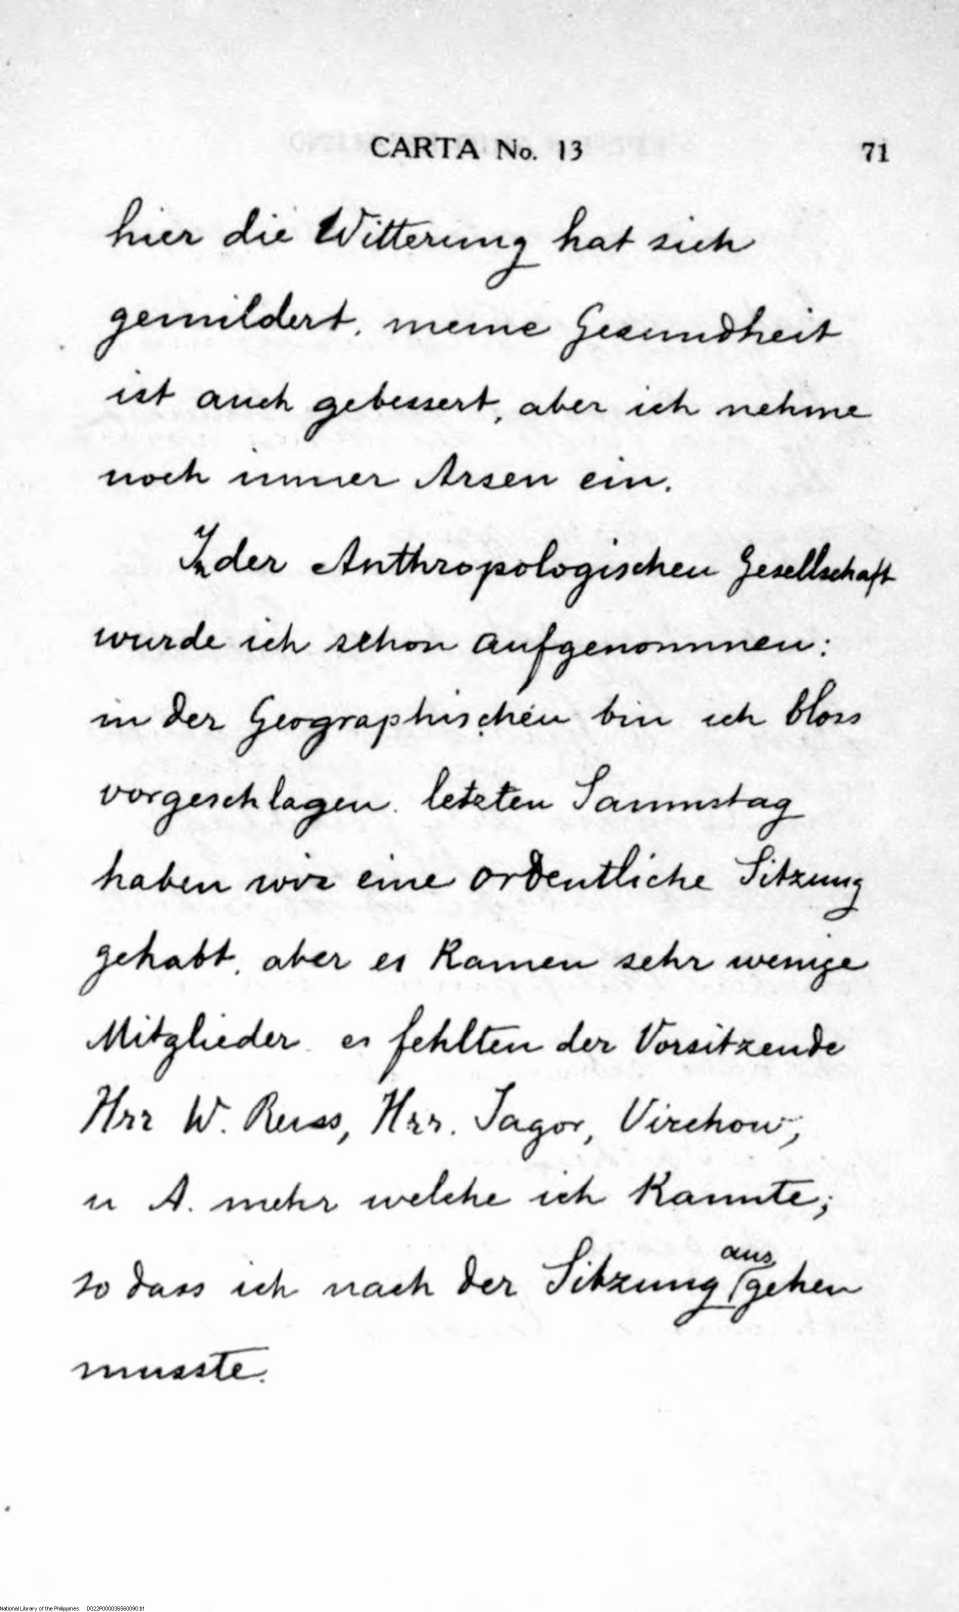 CARTA No. 13 71
hier die Witterung hat sich
gemildert, meine Gesundheit
ist auch gebessert, aber ich nehme
noch immer Arsen ein.
In der Anthropologischen Gesellschaft
wurde ich schon aufgenommen:
in der Geographischen bin ich bloss
vorgeschlagen. letzten Samnstag
haben wir eine ordentliche Sitzung
gehabt, aber es kamen sehr wenige
Mitglieder. es fehlten der Vorsitzende
Hrr W. Reiss, Hrr. Jagor, Virchow,
u A. mehr welche ich kannte;
so dass ich nach der Sitzung aus gehen
musste.
National Library of the Philippines